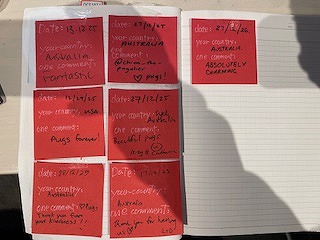 Date: 13.12.25
your country:
Australia
one comment:
Fantastic
date: 27/12/25
your country:
AUSTRALIA
one comment:
pugs!
date: 27/12/25
your country:
AUSTRALIA
one comment:
ABSOLUTELY
CHARMING
date: 12/29/25
your country: USA
one comment:
Pugs forever!
date: 27/12/25
your country:
Australia
one comment:
Beautiful pugs
date:
your country:
Australia
one comment: Pugs
Thank you
and kindness!!
Date:
your country:
Australia
one comment:
Thank you for having
us